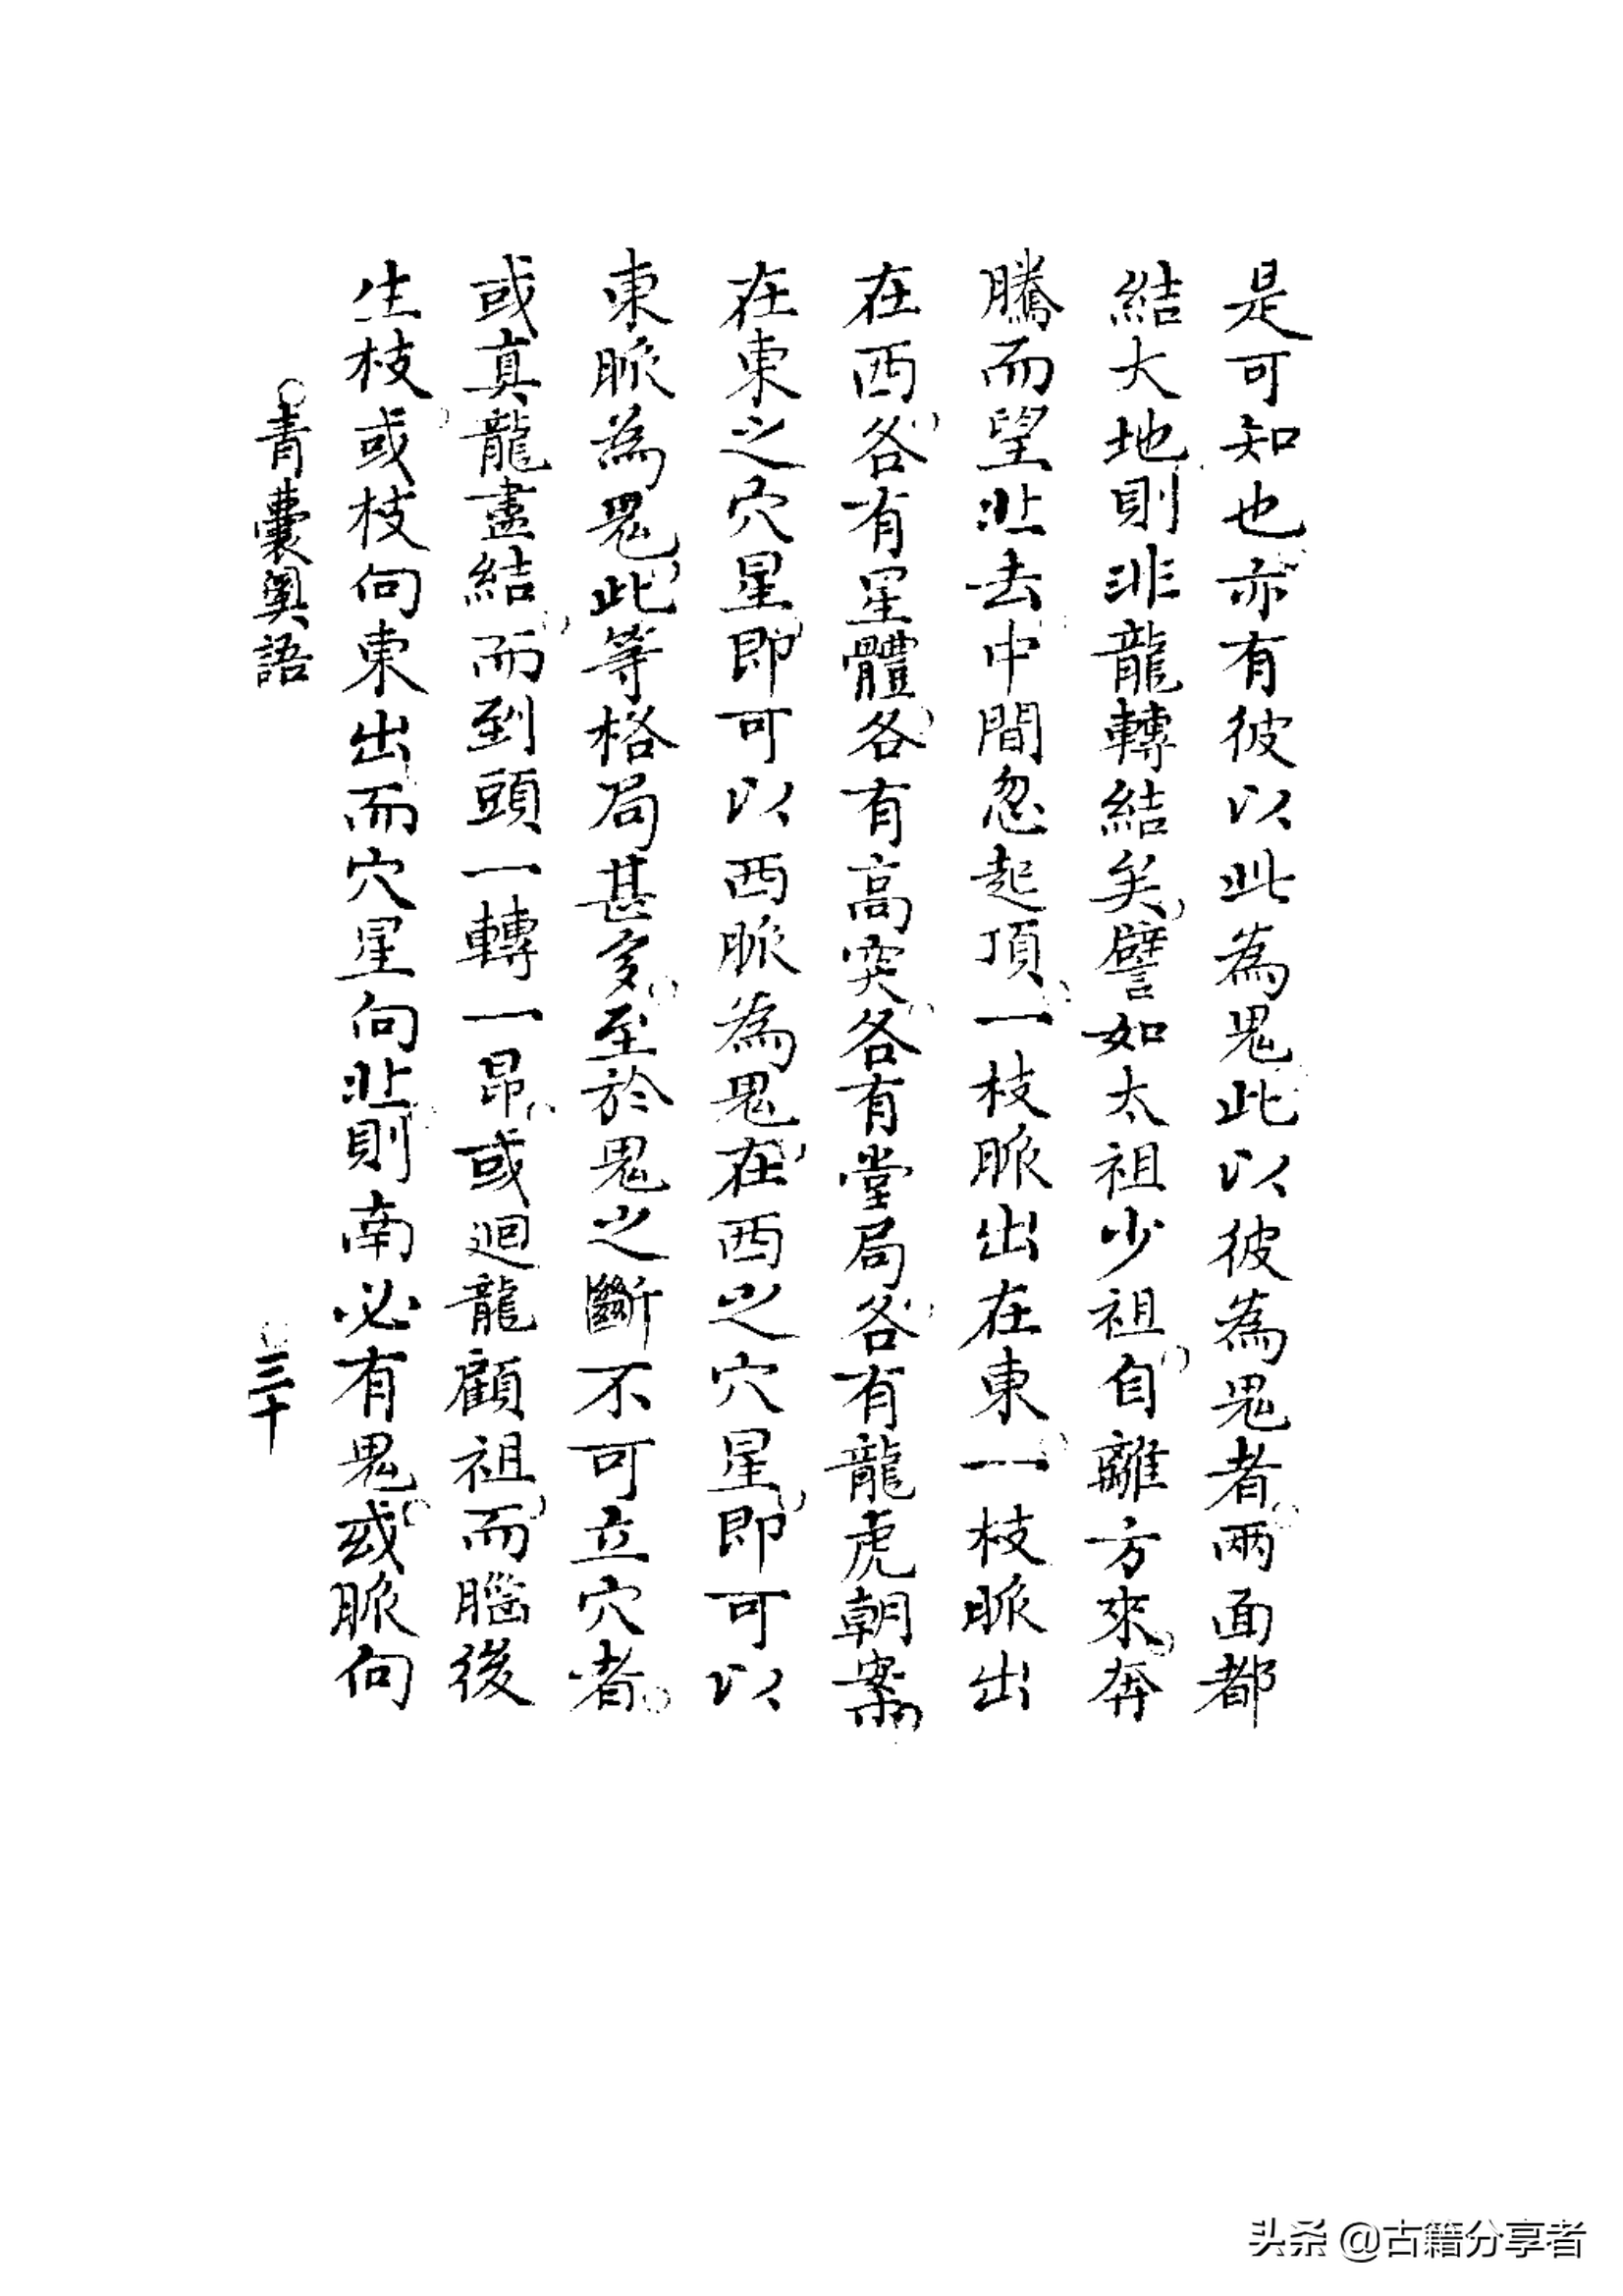 是可知也亦有彼以此為鬼此以彼為鬼者兩面都
結大地則非龍轉結矣譬如太祖少祖自離方來奔
騰而望北去中間忽起頂一枝脈出在東一枝脈出
在西各有星體各有高突各有堂局各有龍虎朝案
在東之穴星即可以西脈為鬼在西之穴星即可以
東脈為鬼此等格局甚多至於鬼之斷不可立穴者
或真龍盡結而到頭一轉一昂或迴龍顧祖而腦後
生枝或枝向東出而穴星向北則南必有鬼或脈向
青囊奧語 三十
头条 @古籍分享者